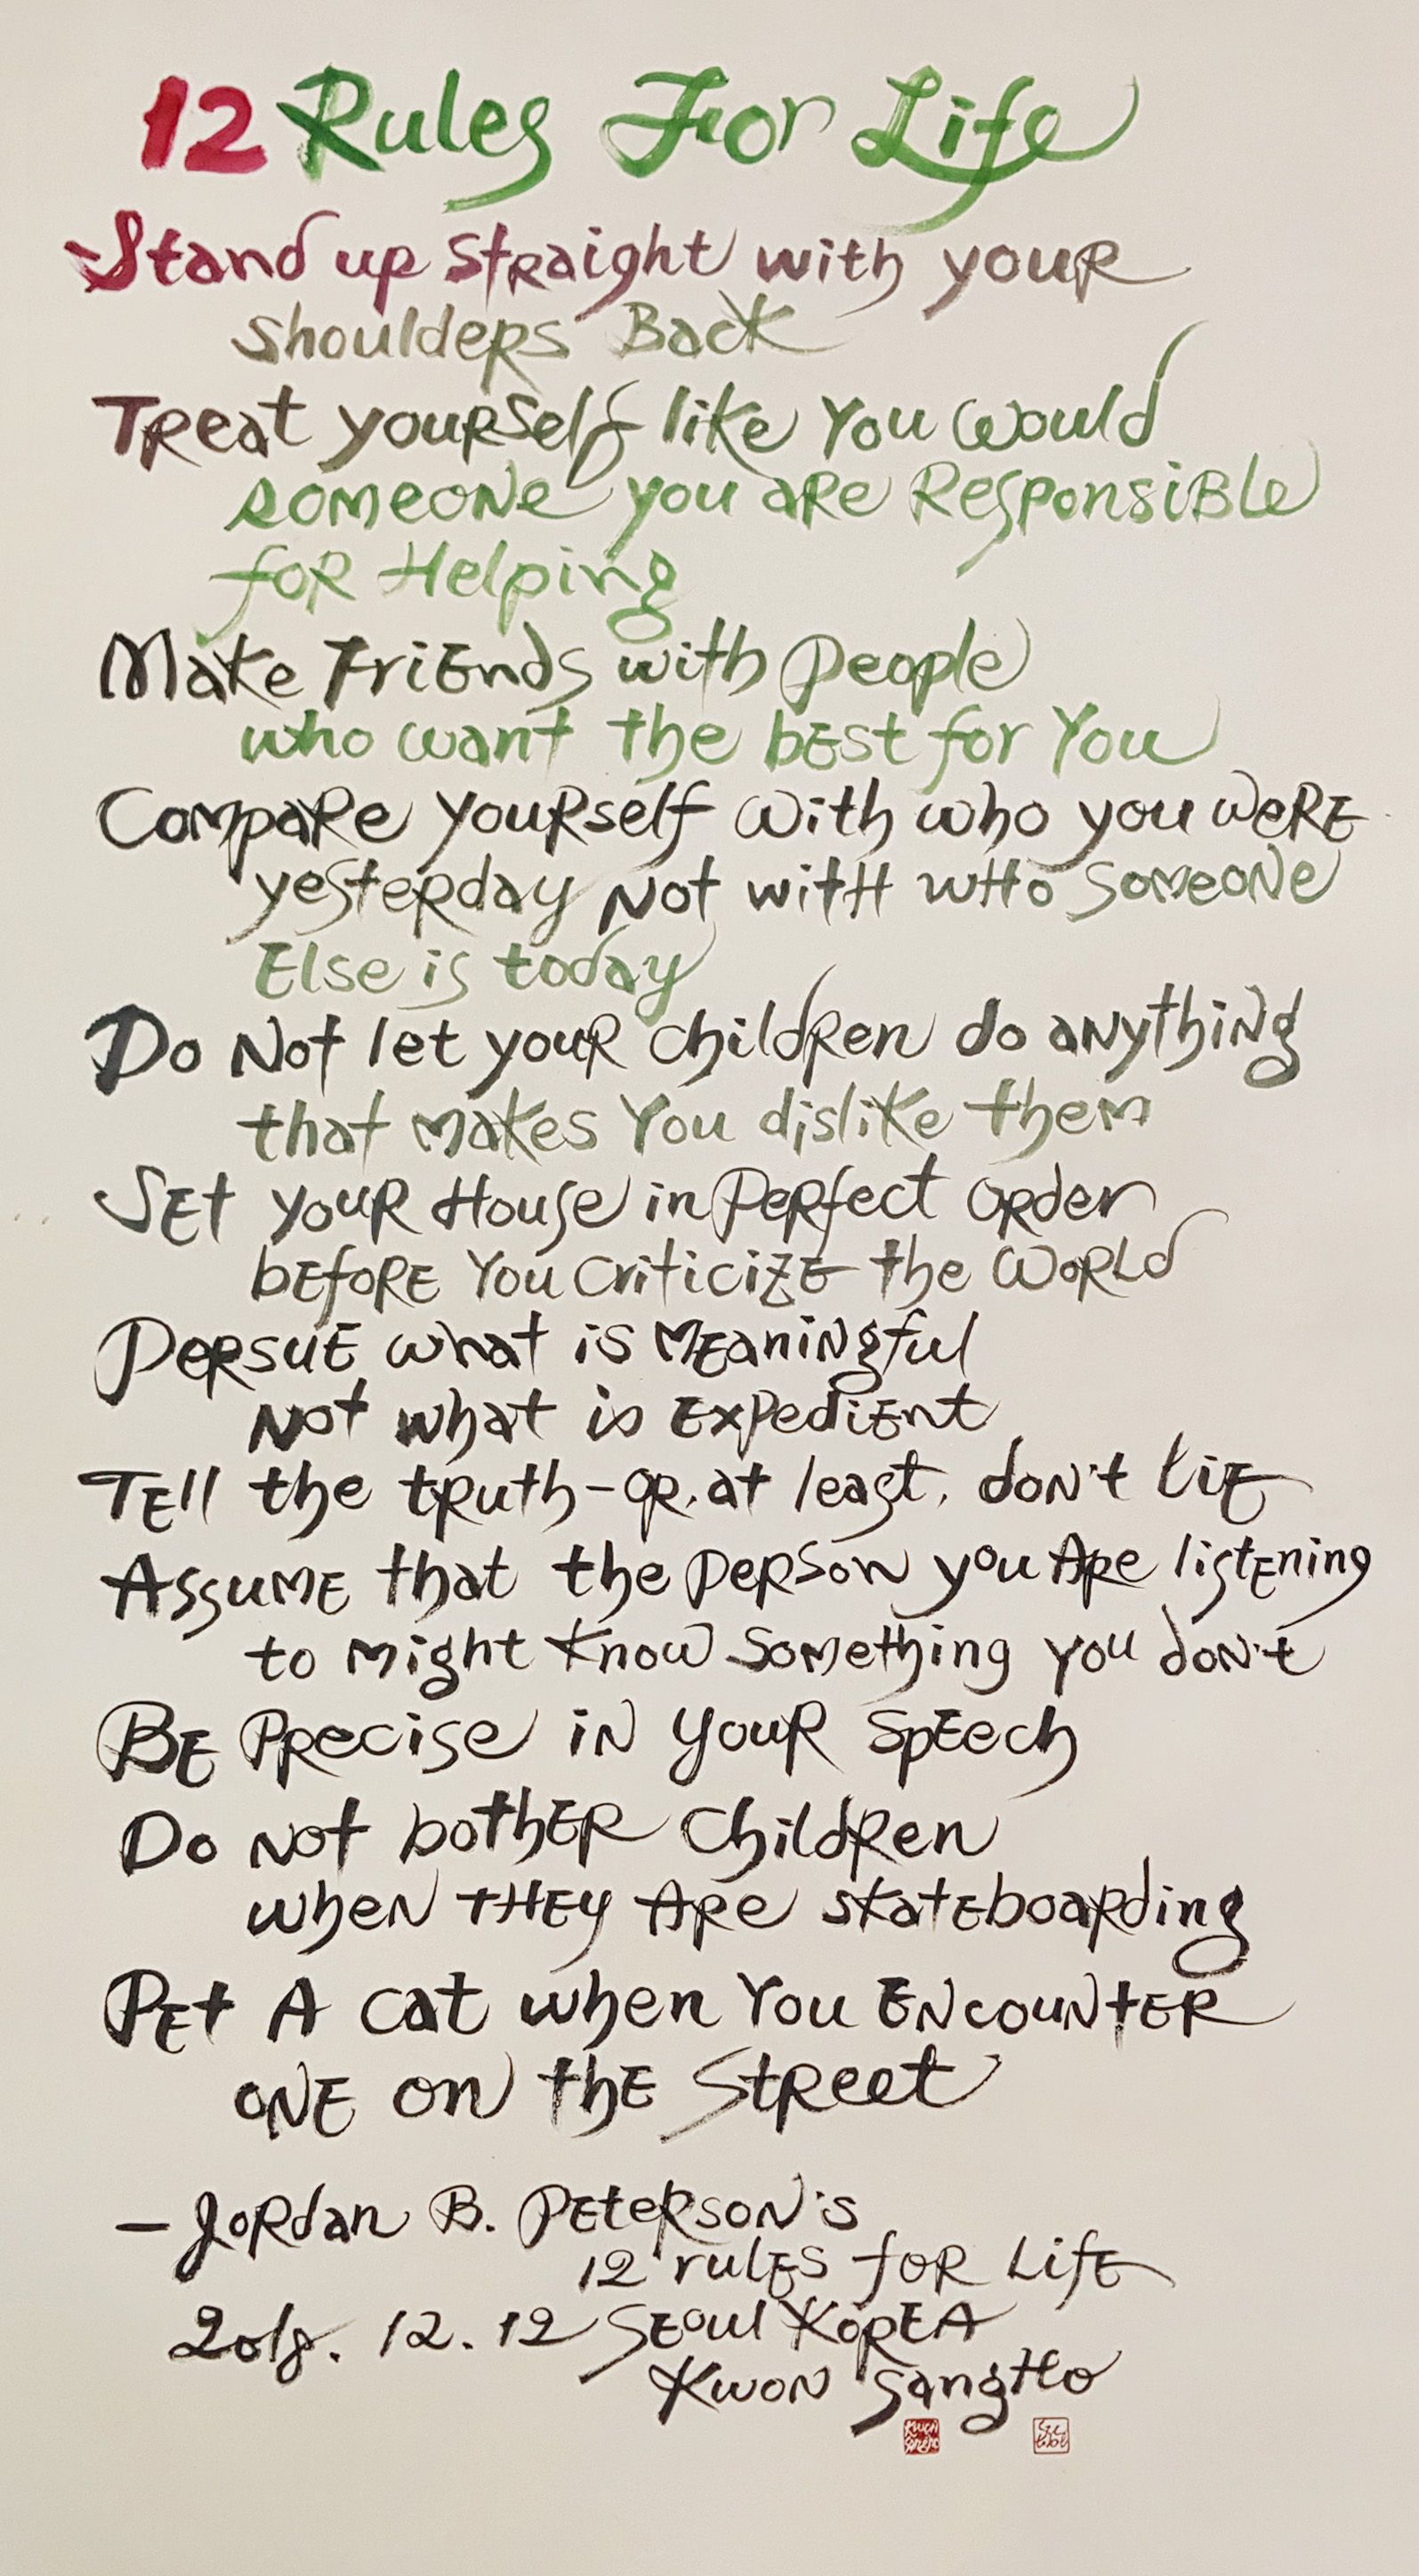 12 Rules For Life
Stand up straight with your
shoulders Back
Treat yourself like You would
someone you are Responsible
for Helping
Make Friends with people
who want the best for You
Compare yourself with who you were
yesterday Not with who someone
Else is today
Do Not let your children do anything
that makes You dislike them
Set your House in Perfect order
before You criticize the World
Persue what is Meaningful
Not what is Expedient
Tell the truth-or. at least, don't lie
Assume that the person you Are listening
to might know something you don't
Be Precise in your Speech
Do not bother children
when they Are skateboarding
Pet A cat when You Encounter
one on the Street
- Jordan B. Peterson's
12 rules for Life
2018. 12. 12 Seoul Korea
Kwon SangHo
Kwon